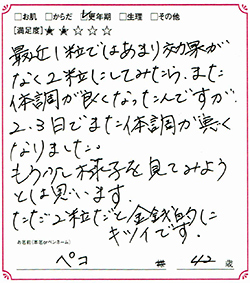 □お肌 □からだ ☑更年期 □生理 □その他
[満足度]★★☆☆☆
最近1粒ではあまり効果が
なく2粒にしてみたら、また
体調が良くなったんですが、
2、3日でまた体調が悪く
なりました。
もう少し様子を見てみよう
とは思います。
ただ2粒だと金銭的に
キツイです。
お名前(本名orペンネーム)
ペコ 42 歳